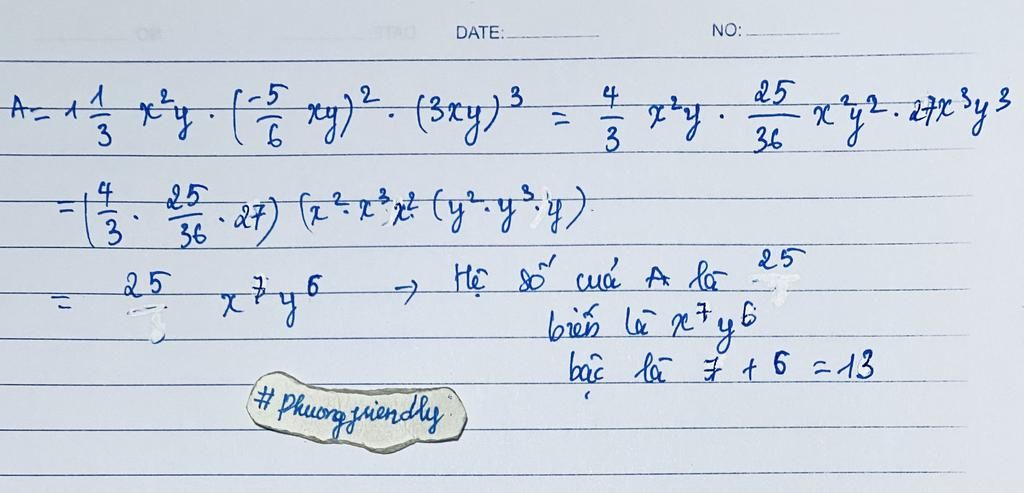 DATE: NO:
A = 1 1/3 x²y · (-5/6 xy)² · (3xy)³ = 4/3 x²y · 25/36 x²y² · 27x³y³
= (4/3 · 25/36 · 27) (x² · x³ x² (y² · y³ · y)
= 25 x⁷y⁶ → Hệ số cuả A là 25
biến là x⁷y⁶
bậc là 7 + 6 = 13
#phuongfriendly